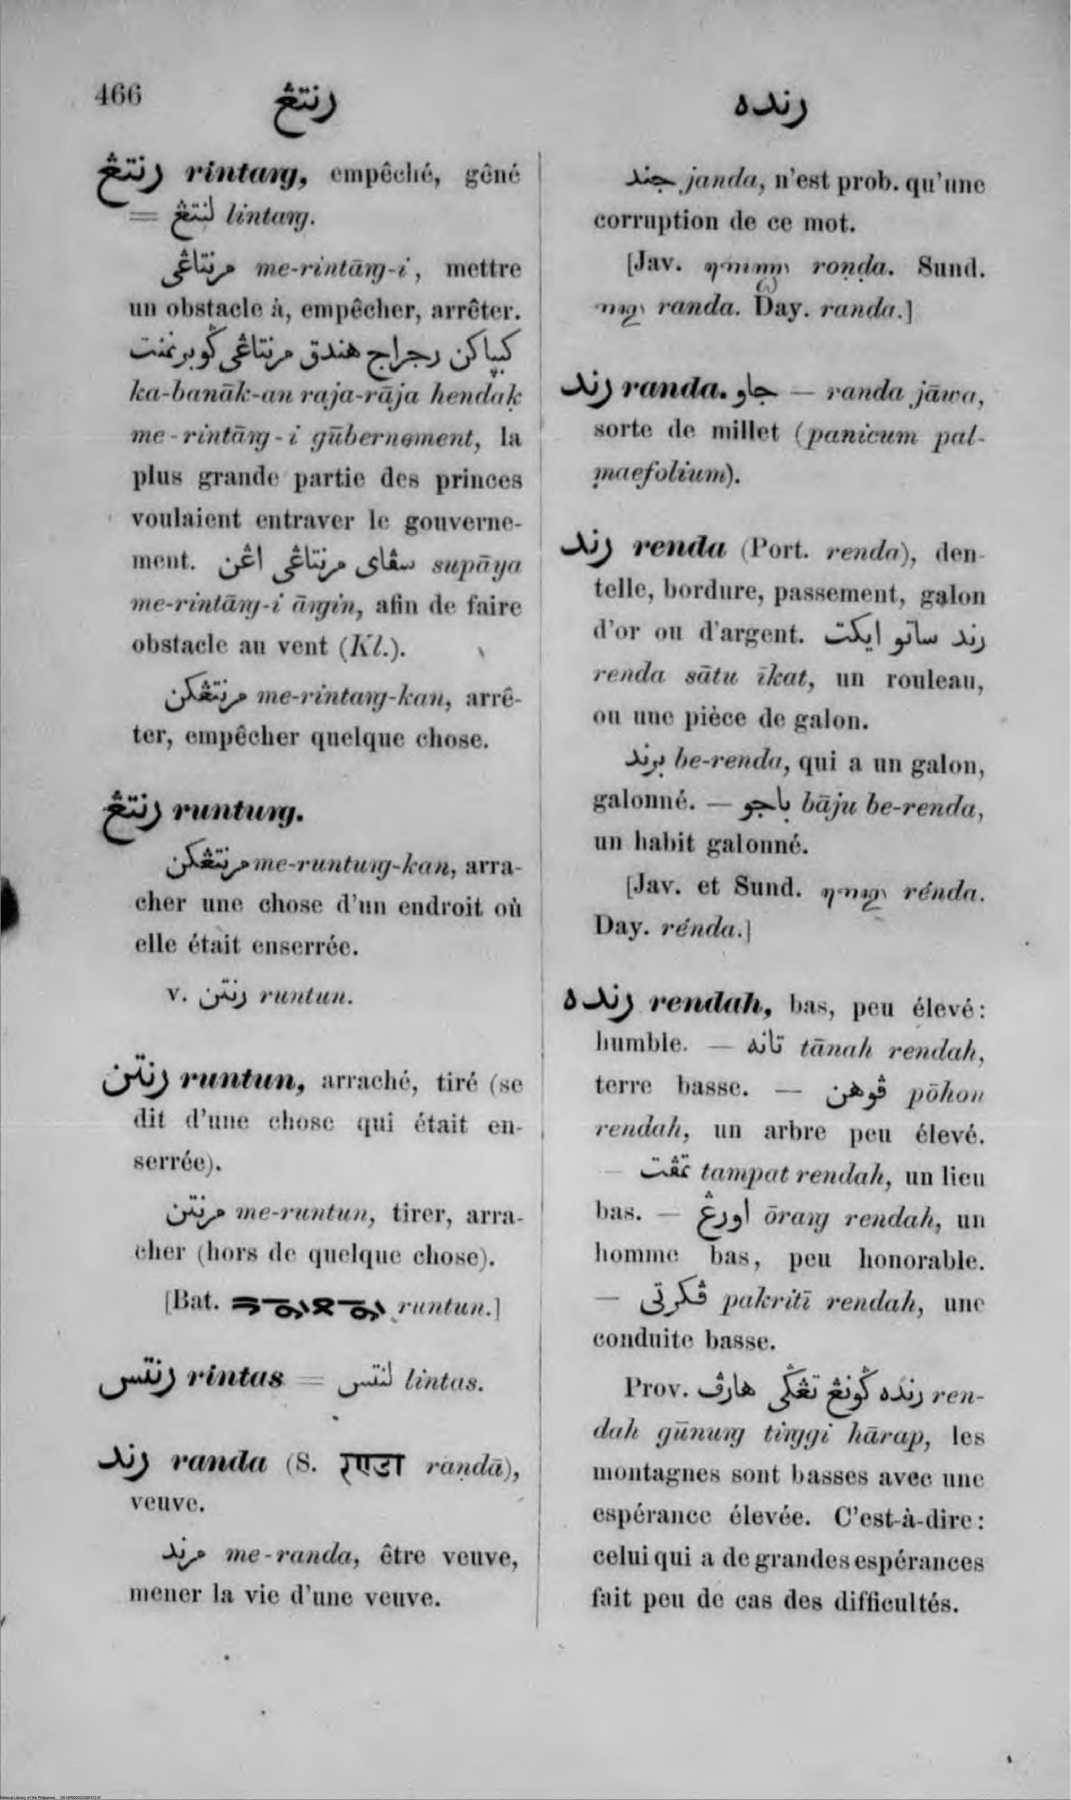 466 رنتڠ رنده
رنتڠ rintaŋ, empêché, gêné
= لنتڠ lintaŋ.
مرنتاڠى me-rintāŋ-i, mettre
un obstacle à, empêcher, arrêter.
كبپاكن رجراج هندق مرنتاڠى
ka-banāk-an raja-rāja hendaḳ
me-rintāŋ-i gūbernement, la
plus grande partie des princes
voulaient entraver le gouverne-
ment. سڤاى مرنتاڠى اڠن supāya
me-rintāŋ-i āŋin, afin de faire
obstacle au vent (Kl.).
مرنتڠكن me-rintaŋ-kan, arrê-
ter, empêcher quelque chose.
رنتڠ runtuŋ.
مرنتڠكن me-runtuŋ-kan, arra-
cher une chose d'un endroit où
elle était enserrée.
v. رنتن runtun.
رنتن runtun, arraché, tiré (se
dit d'une chose qui était en-
serrée).
مرنتن me-runtun, tirer, arra-
cher (hors de quelque chose).
[Bat. runtun.]
رنتس rintas = لنتس lintas.
رند randa (S. रण्डा raṇḍā),
veuve.
مرند me-randa, être veuve,
mener la vie d'une veuve.
جند janda, n'est prob. qu'une
corruption de ce mot.
[Jav. roṇḍa. Sund.
randa. Day. randa.]
رند randa. جاو — randa jāwa,
sorte de millet (panicum pal-
maefolium).
رند renda (Port. renda), den-
telle, bordure, passement, galon
d'or ou d'argent. رند ساتو ايكت
renda sātu īkat, un rouleau,
ou une pièce de galon.
برند be-renda, qui a un galon,
galonné. — باجو bāju be-renda,
un habit galonné.
[Jav. et Sund. rénda.
Day. rénda.]
رنده rendah, bas, peu élevé:
humble. — تانه tānah rendah,
terre basse. — ڤوهن pōhon
rendah, un arbre peu élevé.
— تمڤت tampat rendah, un lieu
bas. — اورڠ ōraŋ rendah, un
homme bas, peu honorable.
— ڤكرتى pakritī rendah, une
conduite basse.
Prov. رنده ڬونڠ تڠڬى هارڤ ren-
dah gūnuŋ tiŋgi hārap, les
montagnes sont basses avec une
espérance élevée. C'est-à-dire:
celui qui a de grandes espérances
fait peu de cas des difficultés.